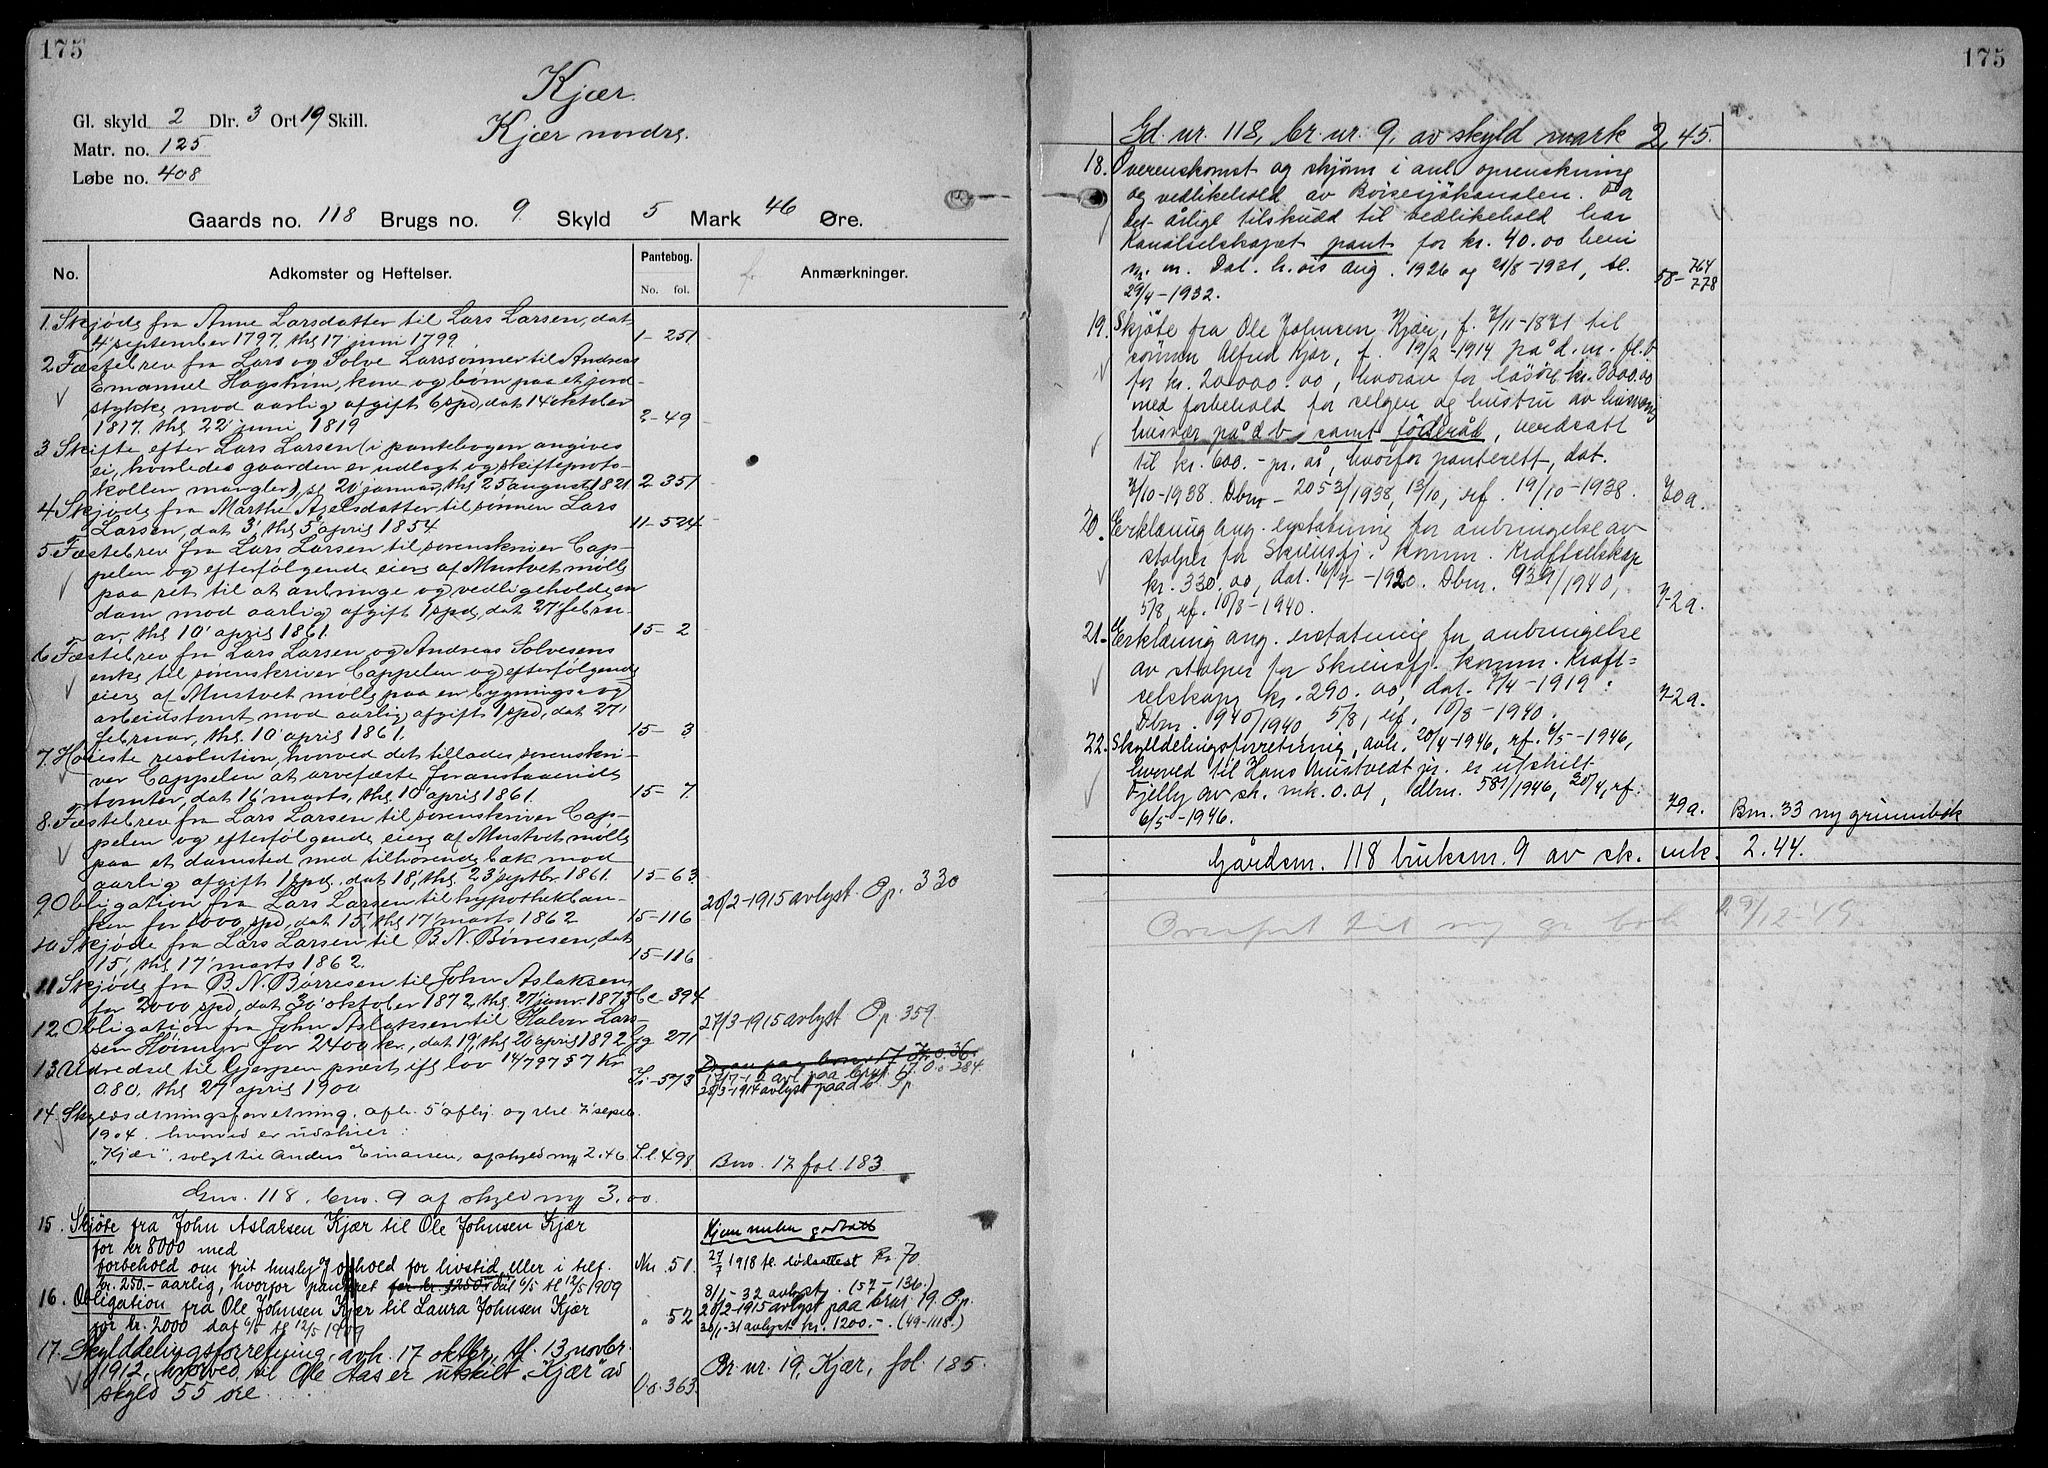 175
Kjær.
Kjær nordre.
Gl. skyld 2 Dlr. 3 Ort 19 Skill.
Matr. no. 125
Løbe no. 408
Gaards no. 118 Brugs no. 9. Skyld 5 Mark 46 Øre.
No. Adkomster og Heftelser. Pantebog. No. fol. Anmærkninger.
1. Skjøde fra Anne Larsdatter til Lars Larsen, dat.
4' september 1797. thl 17' juni 1799. 1-251
2 Fæstebrev fra Lars og Solve Larssønner til Andreas
Emanuel Hagstrøm, kone og børn paa et jord-
stykke mod aarlig afgift 6 spd, dat 14 oktober
1817. thl 22' juni 1819 2-49
3 Skifte efter Lars Larsen (i pantebogen angives
ei, hvorledes gaarden er udlagt og skifteproto-
kollen mangler), sl 20' januar, thl 25 august 1821. 2 351
4. Skjøde fra Marthe Axelsdatter til sønnen Lars
Larsen, dat 3' thl 5' april 1854 11-524
5 Fæstebrev fra Lars Larsen til sorenskriver Cap-
pelen og efterfølgende eiere af Mustvet mølle
paa ret til at anbringe og vedligeholde en
dam mod aarlig afgift 1 spd, dat 27' febru-
ar, thl 10' april 1861. 15-2
6 Fæstebrev fra Lars Larsen og Andreas Solvesens
enke til sorenskriver Cappelen og efterfølgende
eiere af Mustvet mølle paa en bygnings- og
arbeidstomt mod aarlig afgift 1 spd, dat 27'
februar, thl. 10' april 1861. 15-3
7. Høieste resolution, hvorved det tillades sorenskri-
ver Cappelen at arvefæste foranstaaende
tomter, dat 16' marts, thl 10' april 1861. 15-7
8. Fæstebrev fra Lars Larsen til sorenskriver Cap-
pelen og efterfølgende eiere af Mustvet mølle
paa et damsted med tilhørende bæk mod
aarlig afgift 1 spd, dat 18', thl 23' septbr. 1861. 15-63
9 Obligation fra Lars Larsen til hypothekban-
ken for 1000 spd, dat 15', thl 17' marts 1862 15-116 20/2-1915 avlyst Op. 330
10 Skjøde fra Lars Larsen til B. N. Børresen, dat
15', thl 17' marts 1862. 15-116
11 Skjøde fra B. N. Børresen til John Aslaksen
for 2000 spd, dat 30' oktober 1872, thl. 27' janr. 1873 Cc 394
12. Obligation fra John Aslaksen til Halvor Lars-
sen Høimyr for 2400 kr., dat 19', thl 20' april 1892 Gg 271 27/3-1915 avlyst Op. 359
13. Udredsel til Gjerpen prest ifl lov 14/7 97 § 7 Kr
0.80. thl 27 april 1900 Ii-573
28/3-1914 avlyst paa d. b. Op
14. Skyldsætningsforretning, afh. 5' afhj. og thl. 7' septb.
1904. hvorved er udskilt:
"Kjær", solgt til Anders Einarsen, afskyld my 2.46. Ll 498 Bno. 17 fol. 183
Gno. 118, bno. 9 af skyld my 3.00.
15. Skjøte fra John Aslaksen Kjær til Ole Johnsen Kjær
for kr 8000 med
forbehold om frit husly og ophold for livstid eller i tilf.
kr. 250.- aarlig, hvorfor panteret for kr. 1250.- Dat 6/5 tl 12/5 1909 Nn. 51. 27/7 1918 tl. dødsattest Rr 70
8/1-32 avlyst. (57-136.)
16. Obligation fra Ole Johnsen Kjær til Laura Johnsen Kjær
for kr. 2000 dat 6/5 tl 12/5 1909 " 52 20/2-1915 avlyst paa brnr. 19. Op.
30/1-31 avlyst kr. 1200.-. (49-1118.)
17. Skylddelingsforretning, avh. 17 oktbr. tl. 13 novbr.
1912, hvorved til Ole Aas er utskilt "Kjær" av
skyld 55 øre. Oo. 363. Br. nr. 19, Kjær, fol. 185.
175
Gd. nr. 118, br. nr. 9, av skyld mark 2,45.
18. Overenskomst og skjønn i anl oprenskning
og vedlikehold av Börsesjökanalen. For
det årlige tilskudd til vedlikehold har
Kanalselskapet pant for kr. 40.00 heri
m. m. Dat. h.vis aug. 1926 og 21/8-1931, tl.
29/4-1932. 58-764/778
19. Skjöte fra Ole Johnsen Kjær, f. 7/11-1871 til
sönnen Alfred Kjær, f. 19/2-1914 på d. m. fl. b
for kr. 20.000.00, hvorav for lösöre kr. 3000.00
med forbehold for selgeren og hustru av
husvær på d b samt föderåd, verdsatt
til kr. 600.- pr. år, hvorfor panterett, dat.
7/10-1938. Dbnr. 2053/1938, 13/10, rf. 19/10-1938. 70a.
20. Erklæring ang. erstatning for anbringelse av
stolper for Skiensfj. komm. Kraftselskap
kr. 330.00, dat. 16/4-1920. Dbnr. 939/1940,
5/8, rf. 10/8-1940. 72a.
21. Erklæring ang. erstatning for anbringelse
av stolper for Skiensfj. komm. Kraft=
selskap, kr. 290.00, dat. 7/4-1919.
Dbnr. 940/1940 5/8, rf. 10/8-1940. 72a.
22. Skylddelingsforretning, avh. 20/4-1946, rf. 6/5-1946,
hvorved til Hans Mustvedt jr. er utskilt
Fjelly av sk. mk. 0.01, dbnr. 581/1946, 30/4, rf.
6/5-1946. 79a. Bnr. 33 ny grunnbok
Gårdsnr. 118 bruksnr. 9 av sk. mk. 2.44.
Overført til ny gr. bok 29/12-49.